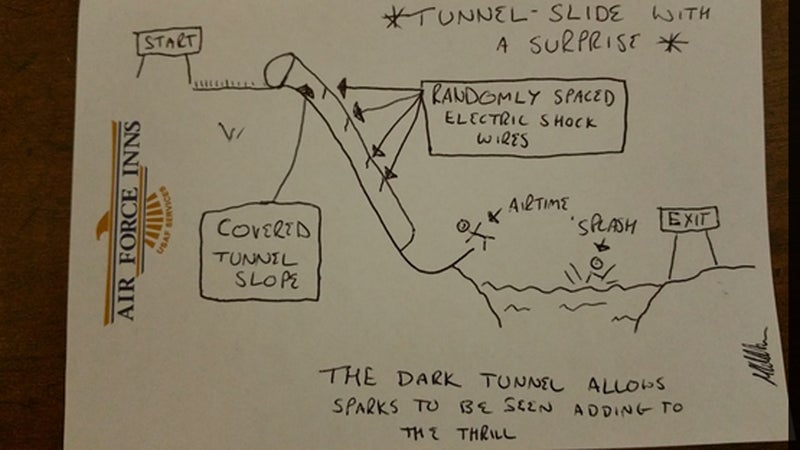 *TUNNEL-SLIDE WITH
A SURPRISE *
START
RANDOMLY SPACED
ELECTRIC SHOCK
WIRES
AIR FORCE INNS
USAF SERVICES
COVERED
TUNNEL
SLOPE
AIRTIME
SPLASH
EXIT
THE DARK TUNNEL ALLOWS
SPARKS TO BE SEEN ADDING TO
THE THRILL